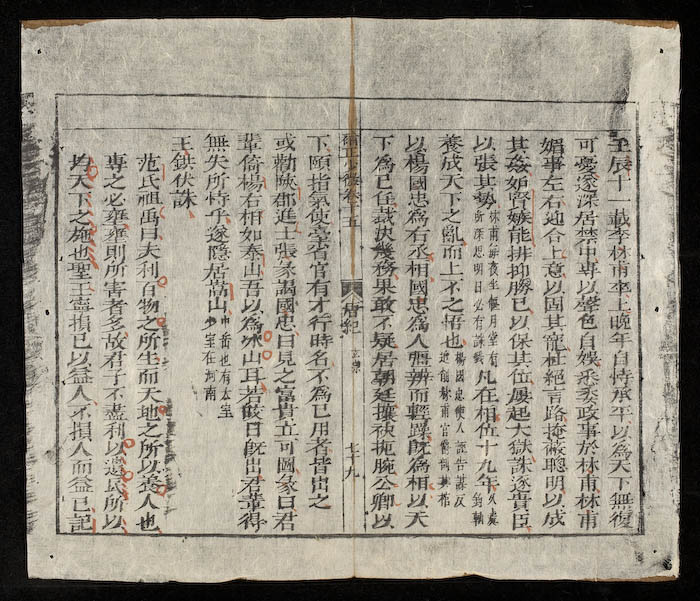 壬辰十一載李林甫卒上晚年自恃承平以爲天下無復
可憂遂深居禁中專以聲色自娛悉委政事於林甫林甫
媚事左右迎合上意以固其寵杜絕言路掩蔽聰明以成
其姦妬賢嫉能排抑勝己以保其位屢起大獄誅逐貴臣
以張其勢 凡在相位十九年
養成天下之亂而上不之悟也
以楊國忠爲右丞相國忠爲人彊辨而輕躁旣爲相以天
下爲己任裁決幾務果敢不疑居朝廷攘袂扼腕公卿以
唐紀 玄宗 七十九
下頤指氣使臺省官有才行時名不爲己用者皆出之
或勸陝郡進士張彖謁國忠曰見之富貴立可圖彖曰君
輩倚楊右相如泰山吾以爲冰山耳若皎日旣出君輩得
無失所恃乎遂隱居嵩山 中岳也有太室少室在河南
王鉷伏誅
范氏祖禹曰夫利百物之所生而天地之所以養人也
專之必壅壅則所害者多故君子不盡利以遺民所以
均天下之施也聖王寧損己以益人不損人而益己記